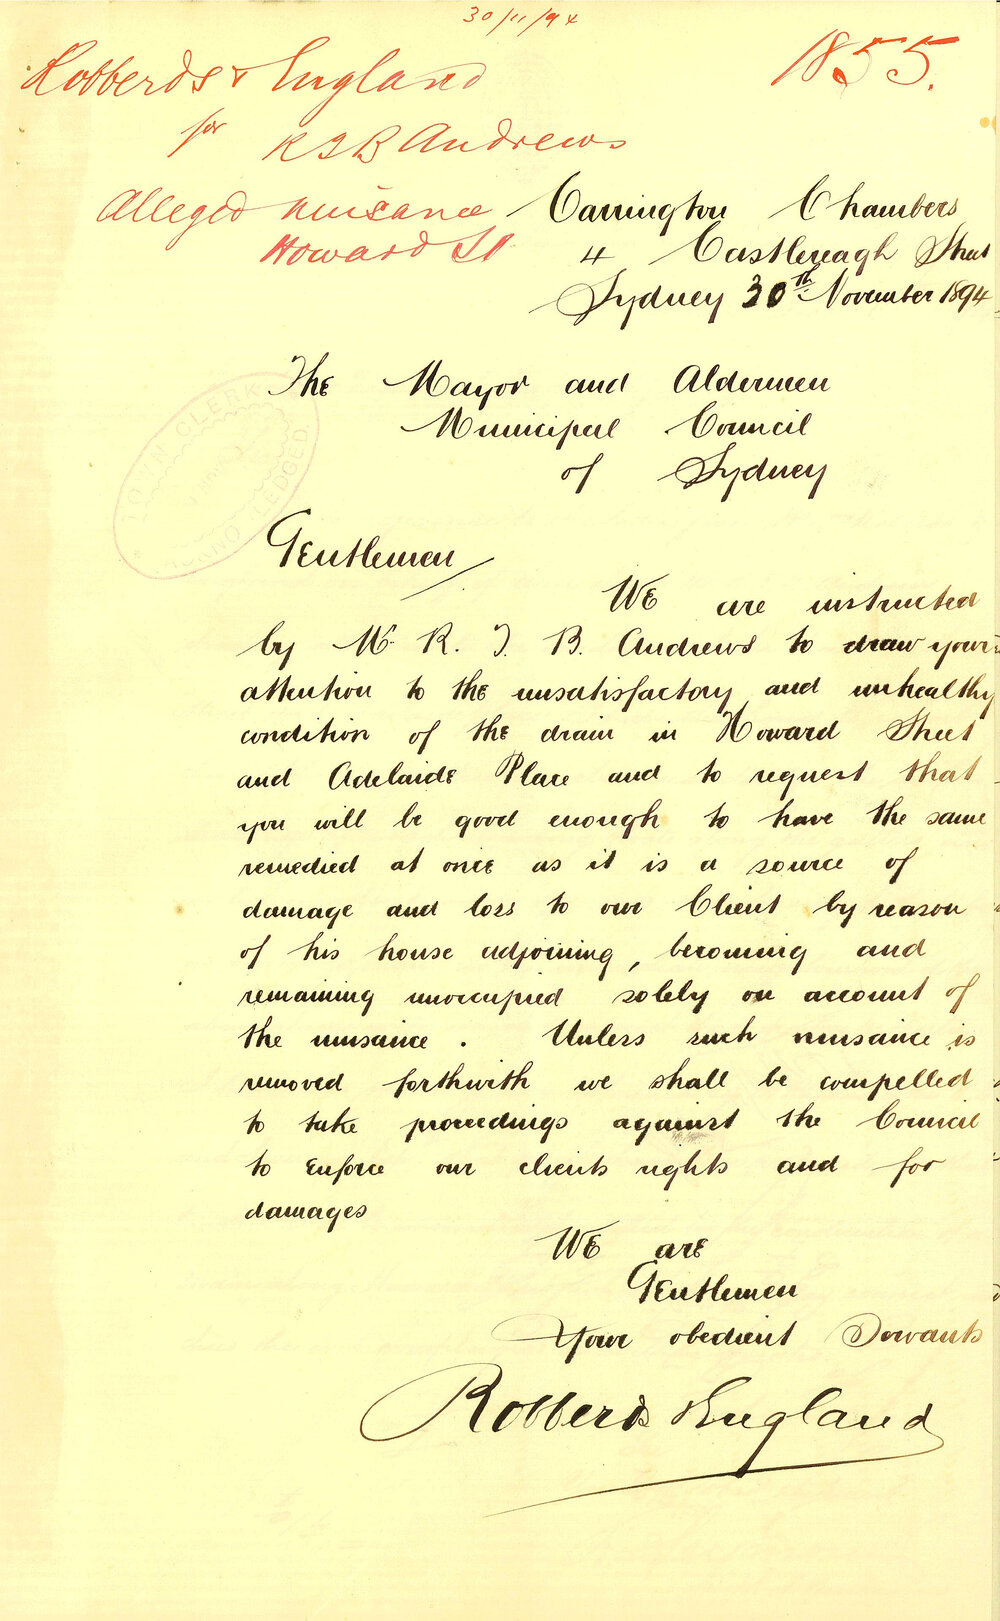 30/11/94
1855.
Robberds & England
for
R J B Andrews
Alleged nuisance
Howard St
Carrington Chambers
4 Castlereagh Street
Sydney 30th November 1894
The Mayor and Aldermen
Municipal Council
of Sydney
TOWN CLERK
Gentlemen
We are instructed
by Mr R. J. B. Andrews to draw your
attention to the unsatisfactory and unhealthy
condition of the drain in Howard Street
and Adelaide Place and to request that
you will be good enough to have the same
remedied at once as it is a source of
damage and loss to our Client by reason
of his house adjoining, becoming and
remaining unoccupied solely on account of
the nuisance. Unless such nuisance is
removed forthwith we shall be compelled
to take proceedings against the Council
to enforce our clients rights and for
damages
We are
Gentlemen
Your obedient Servants
Robberds & England